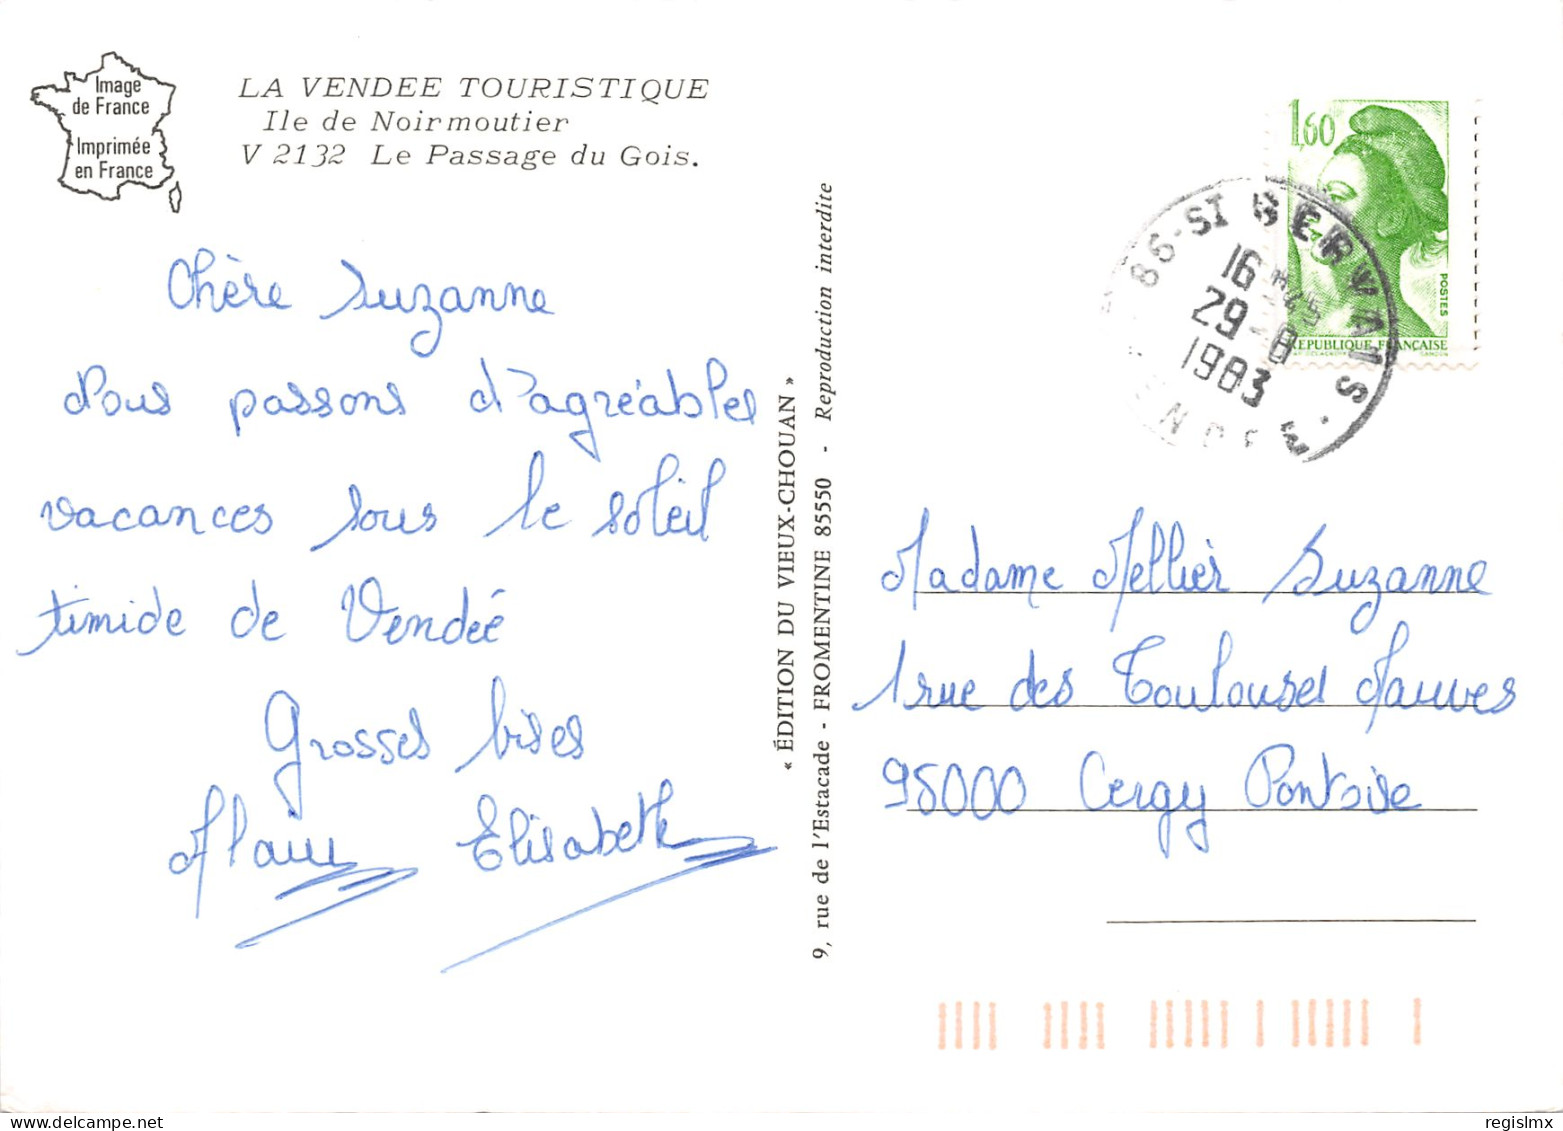 Image
de France
Imprimée
en France
LA VENDEE TOURISTIQUE
Ile de Noirmoutier
V 2132 Le Passage du Gois.
Chère Suzanne
Nous passons d'agréables
vacances sous le soleil
timide de Vendée
Grosses bises
Alain Elisabeth
« ÉDITION DU VIEUX-CHOUAN »
9, rue de l'Estacade - FROMENTINE 85550 - Reproduction interdite
1,60
POSTES
REPUBLIQUE FRANÇAISE
ST GERVAIS
16 H 45
29-8
1983
Madame Mellier Suzanne
1 rue des Toulouses Mauves
95000 Cergy Pontoise
regislmx